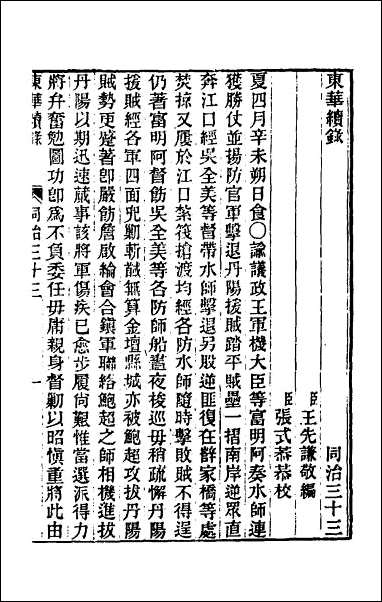 東華續錄　同治三十三
臣王先謙敬編
臣張式恭恭校
夏四月辛未朔日食〇諭議政王軍機大臣等富明阿奏水師連
獲勝仗並揚防官軍擊退丹陽援賊踏平賊壘一摺南岸逆眾直
奔江口經吳全美等督帶水師擊退另股逆匪復在薛家橋等處
焚掠又屢於江口紮筏搶渡均經各防水師隨時擊敗賊不得逞
仍著富明阿督飭吳全美等各防師船晝夜梭巡毋稍疏懈丹陽
援賊經各軍四面兜剿斬馘無算金壇縣城亦被鮑超攻拔丹陽
賊勢更蹙著卽嚴飭詹啟綸會合鎮軍聯絡鮑超之師相機進拔
丹陽以期迅速蕆事該將軍傷疾已愈步履尚艱惟當選派得力
將弁奮勉圖功卽爲不負委任毋庸親身督勦以昭愼重將此由
東華續錄　同治三十三　一